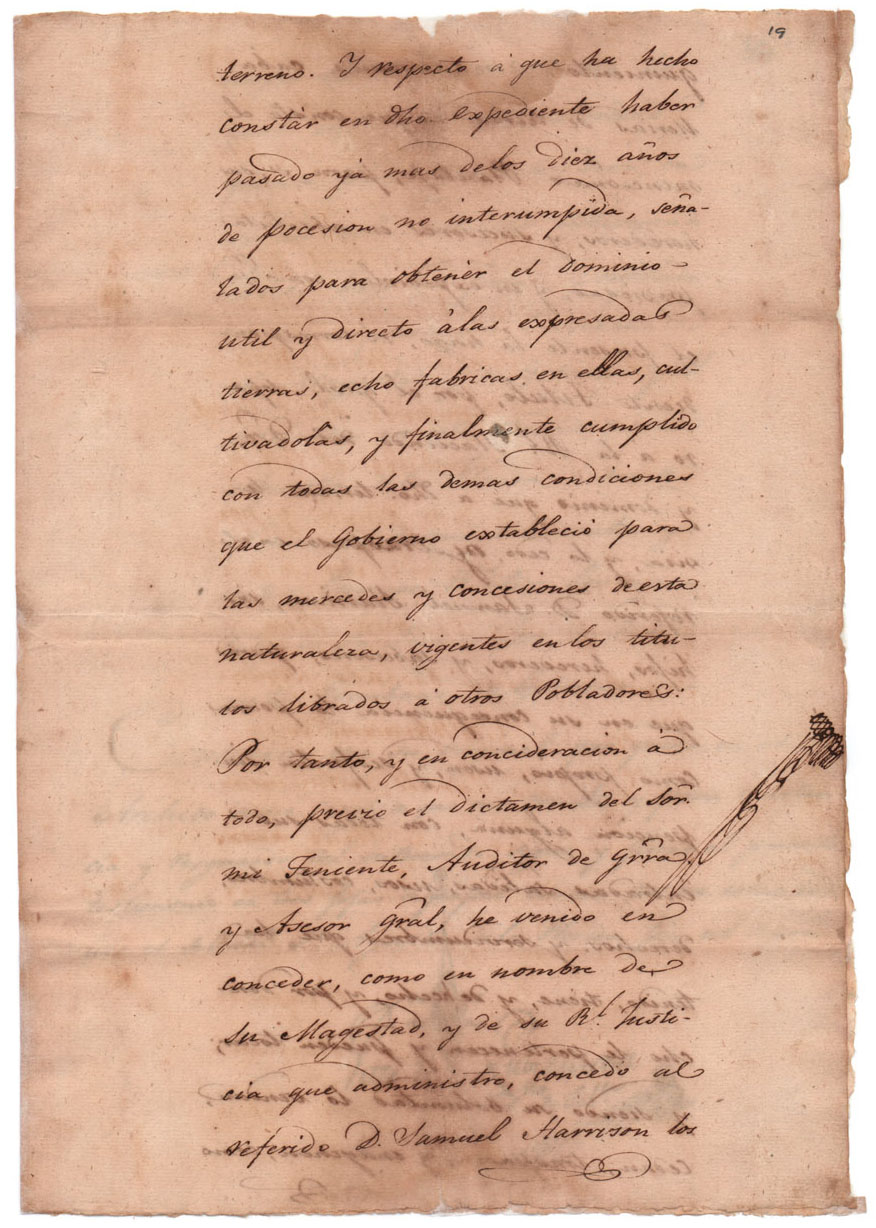 19
terreno. Y respecto á que ha hecho
constár en dho. Expediente haber
pasado yá mas delos diez años
de pocesion no interumpida, seña-
lados para obtenér el dominio
util y directo álas expresadas
tierras, echo fabricas en ellas, cul-
tivadolas, y finalmente cumplido
con todas las demas condiciones
que el Gobierno extableció para
las mercedes y concesiones de esta
naturaleza, vigentes en los titu-
los librados á otros Pobladores:
Por tanto, y en concideracion á
todo, previo el dictamen del Sor.
mi Teniente, Auditor de Grra.
y Asesor Gral, he venido en
conceder, como en nombre de
su Magestad, y de su Rl. Justi-
cia que administro, concedo al
referido D. Samuel Harrison los